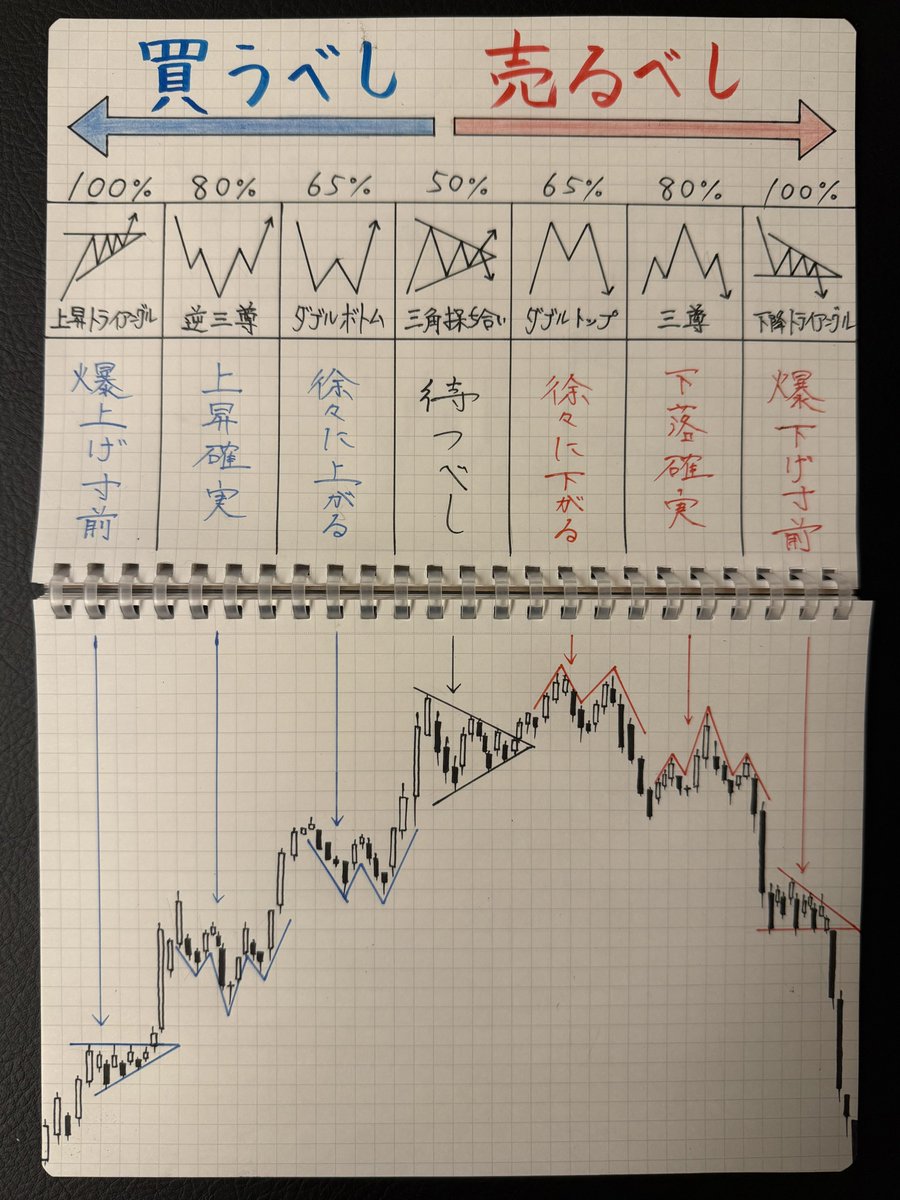 買うべし 売るべし
100% 80% 65% 50% 65% 80% 100%
上昇トライアングル 逆三尊 ダブルボトム 三角採ち合い ダブルトップ 三尊 下降トライアングル
爆上げ寸前
上昇確実
徐々に上がる
待つべし
徐々に下がる
下落確実
爆下げ寸前